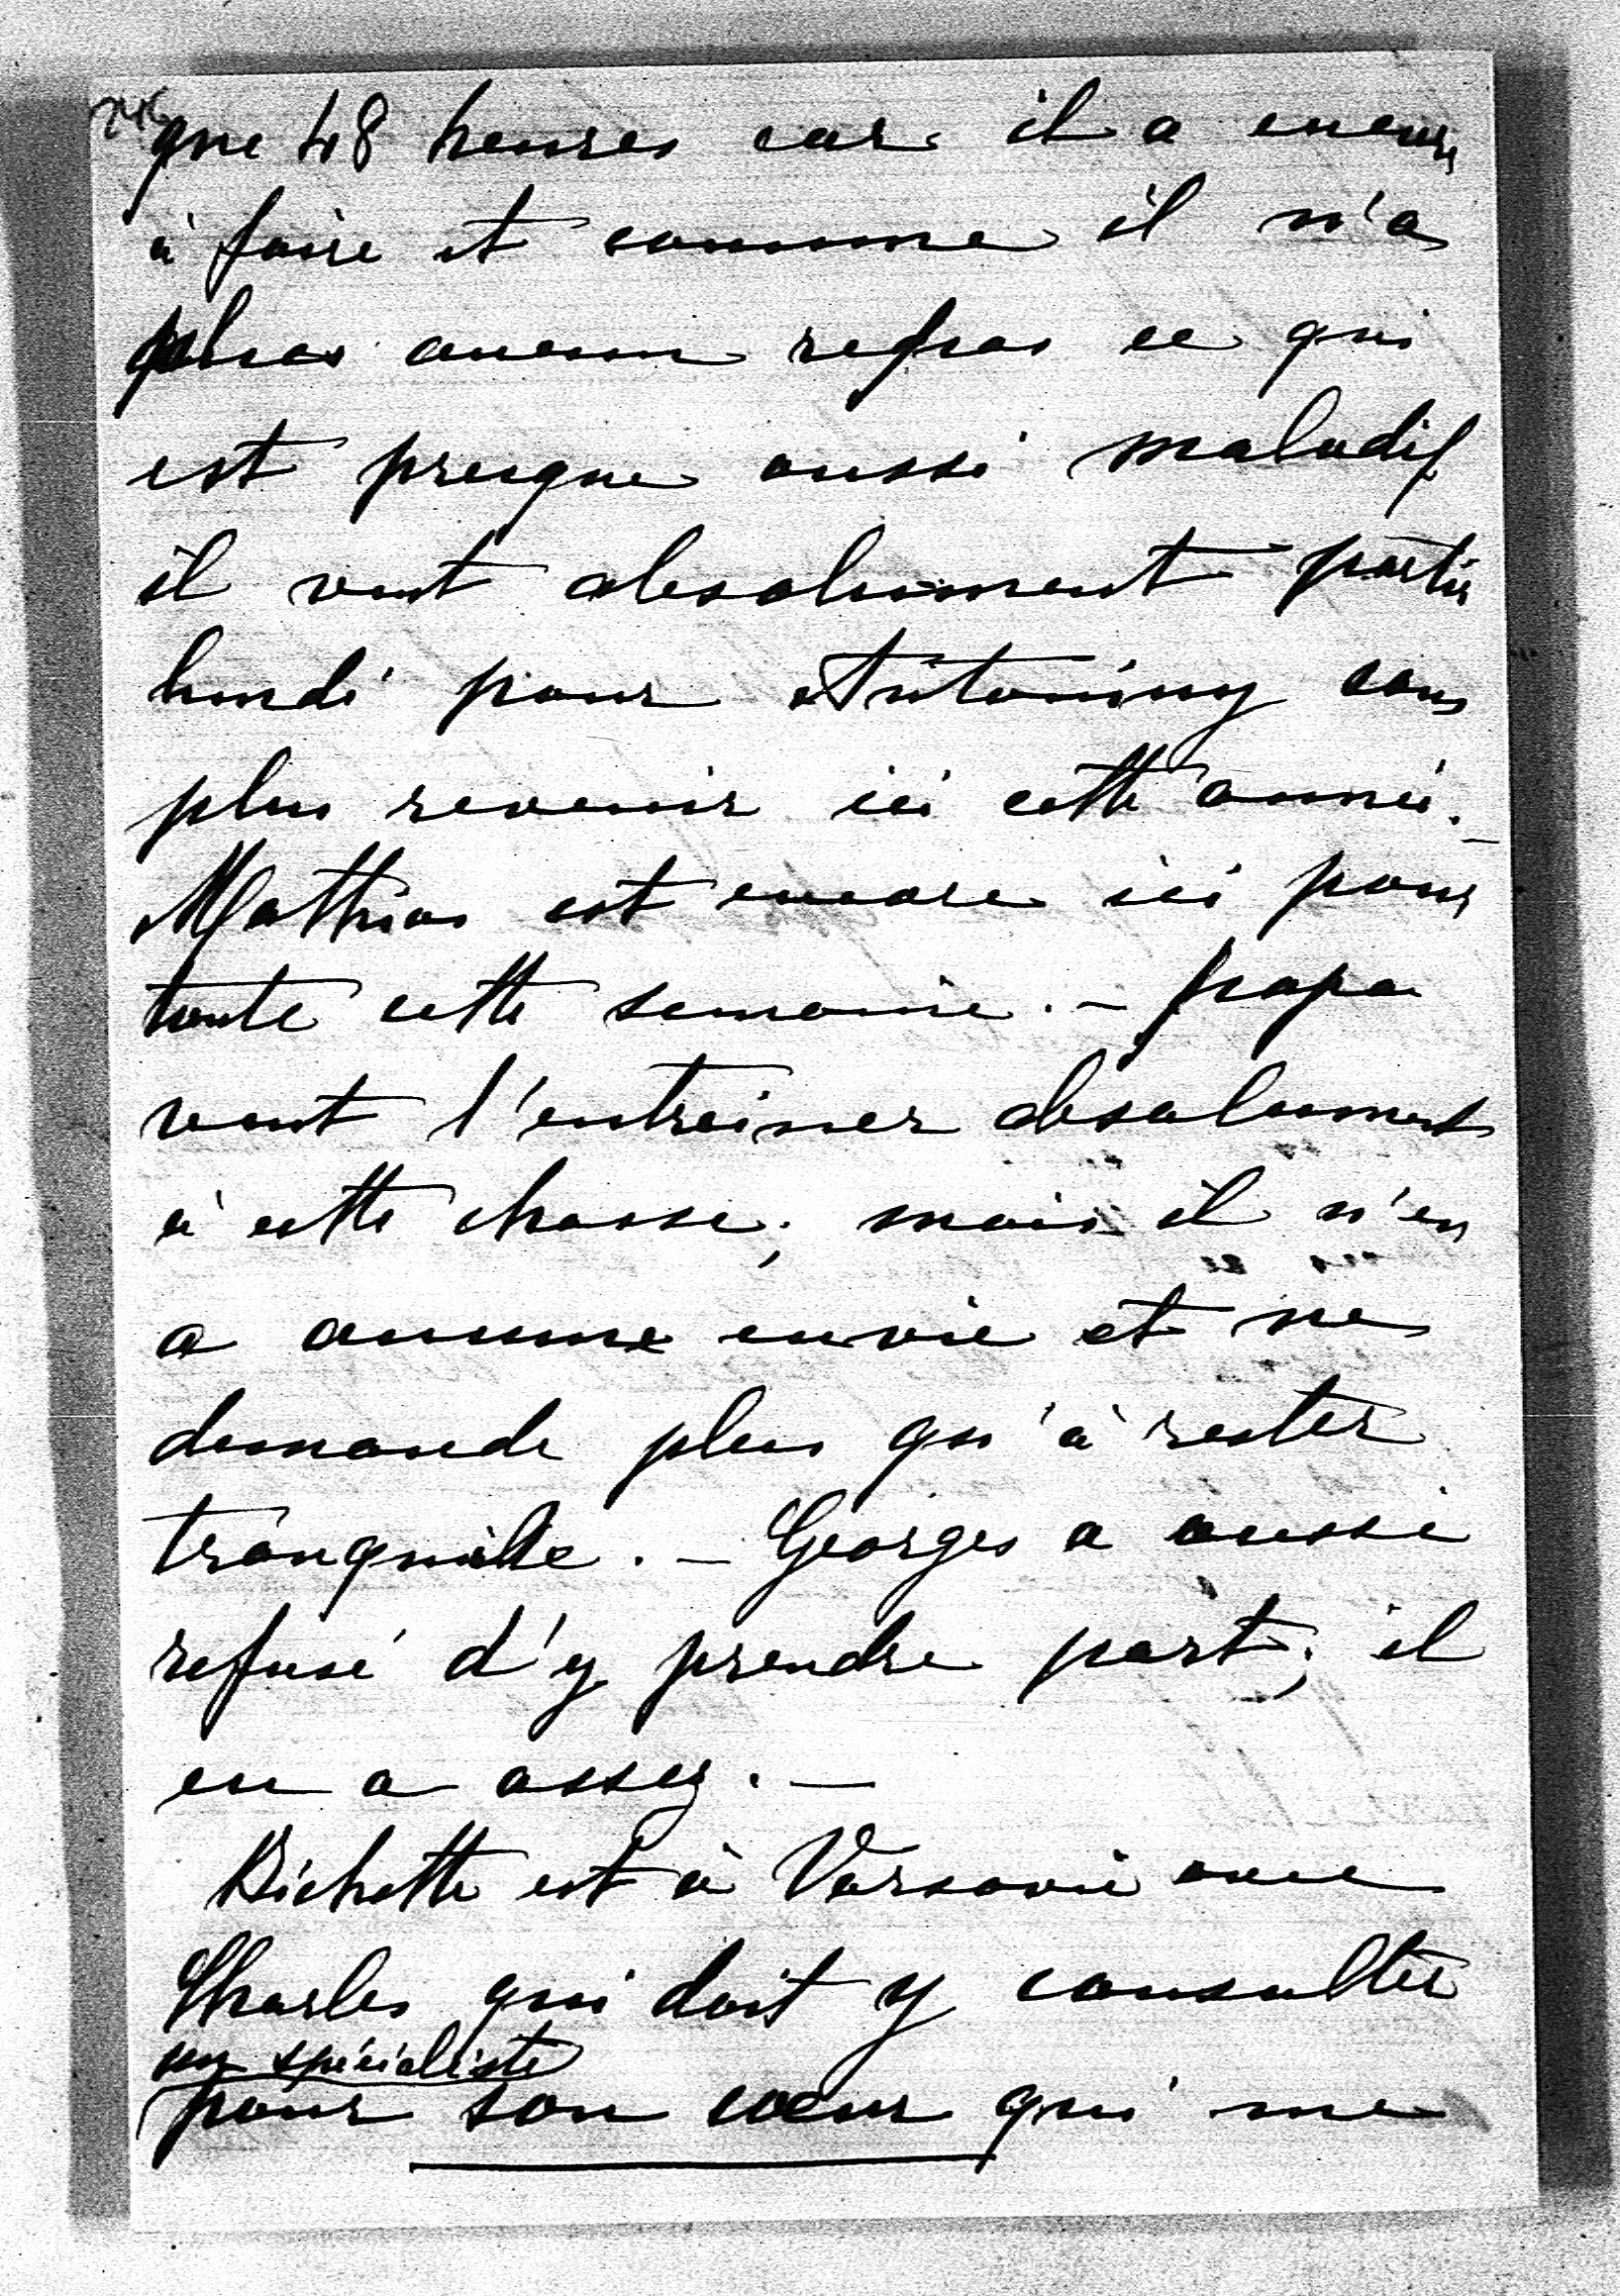 que 48 heures car il a encore
à faire et comme il n'a
plus aucun repos ce qui
est presque aussi maladif
il veut absolument partir
lundi pour Antoniny sans
plus revenir ici cette année. —
Mathias est encore ici pour
toute cette semaine. — papa
veut l'entreiner absolument
à cette chasse; mais il n'en
a aucune envie et ne
demande plus qu'à rester
tranquille. — Georges a aussi
refusé d'y prendre part; il
en a assez. —
Bichette est à Varsovie avec
Charles qui doit y consulter
un spécialiste
pour son coeur qui me